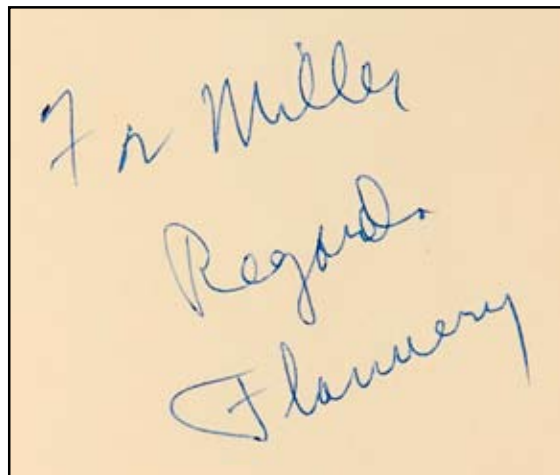 For Miller
Regards
Flannery